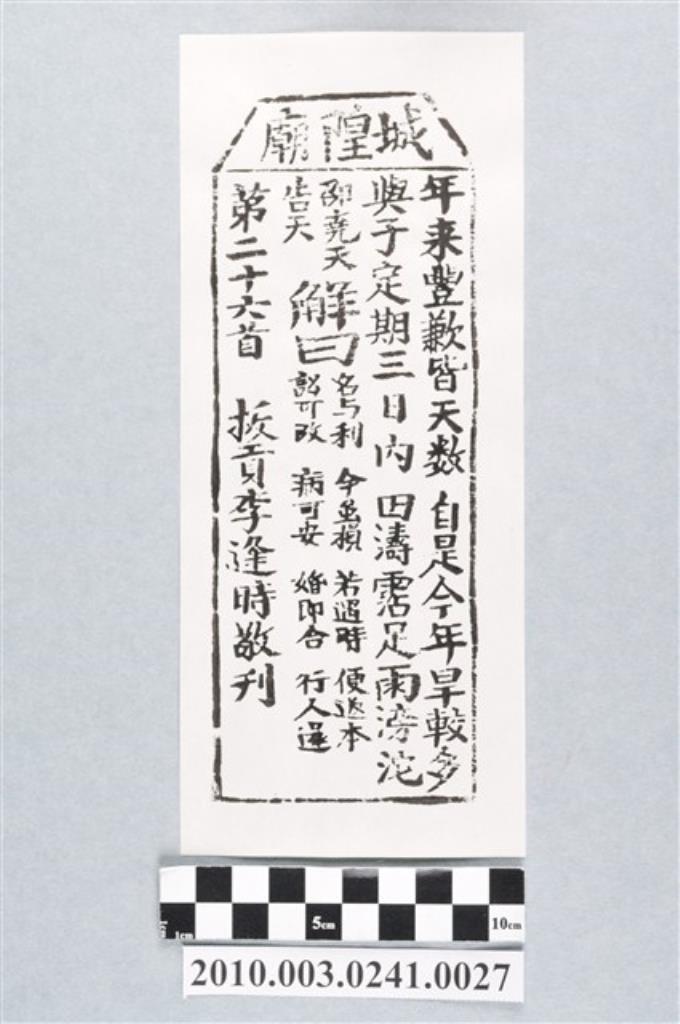 城隍廟
年来豐歉皆天数 自是今年旱較多
與子定期三日內 田濤霑足雨滂沱
邵堯天
告天
解曰
名与利 今並損 若遇時 便返本
訟可改 病可安 婚即合 行人還
第二十六首 拔貢李逢時敬刋
5cm
10cm
1cm
2010.003.0241.0027